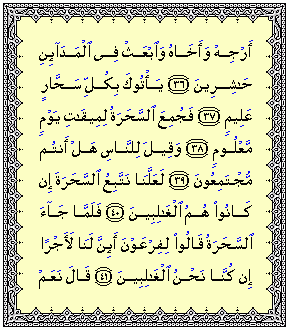 أَرْجِهْ وَأَخَاهُ وَٱبْعَثْ فِى ٱلْمَدَآئِنِ
حَـٰشِرِينَ ٣٦ يَأْتُوكَ بِكُلِّ سَحَّارٍ
عَلِيمٍ ٣٧ فَجُمِعَ ٱلسَّحَرَةُ لِمِيقَـٰتِ يَوْمٍ
مَّعْلُومٍ ٣٨ وَقِيلَ لِلنَّاسِ هَلْ أَنتُم
مُّجْتَمِعُونَ ٣٩ لَعَلَّنَا نَتَّبِعُ ٱلسَّحَرَةَ إِن
كَانُوا۟ هُمُ ٱلْغَـٰلِبِينَ ٤٠ فَلَمَّا جَآءَ
ٱلسَّحَرَةُ قَالُوا۟ لِفِرْعَوْنَ أَئِنَّ لَنَا لَأَجْرًا
إِن كُنَّا نَحْنُ ٱلْغَـٰلِبِينَ ٤١ قَالَ نَعَمْ